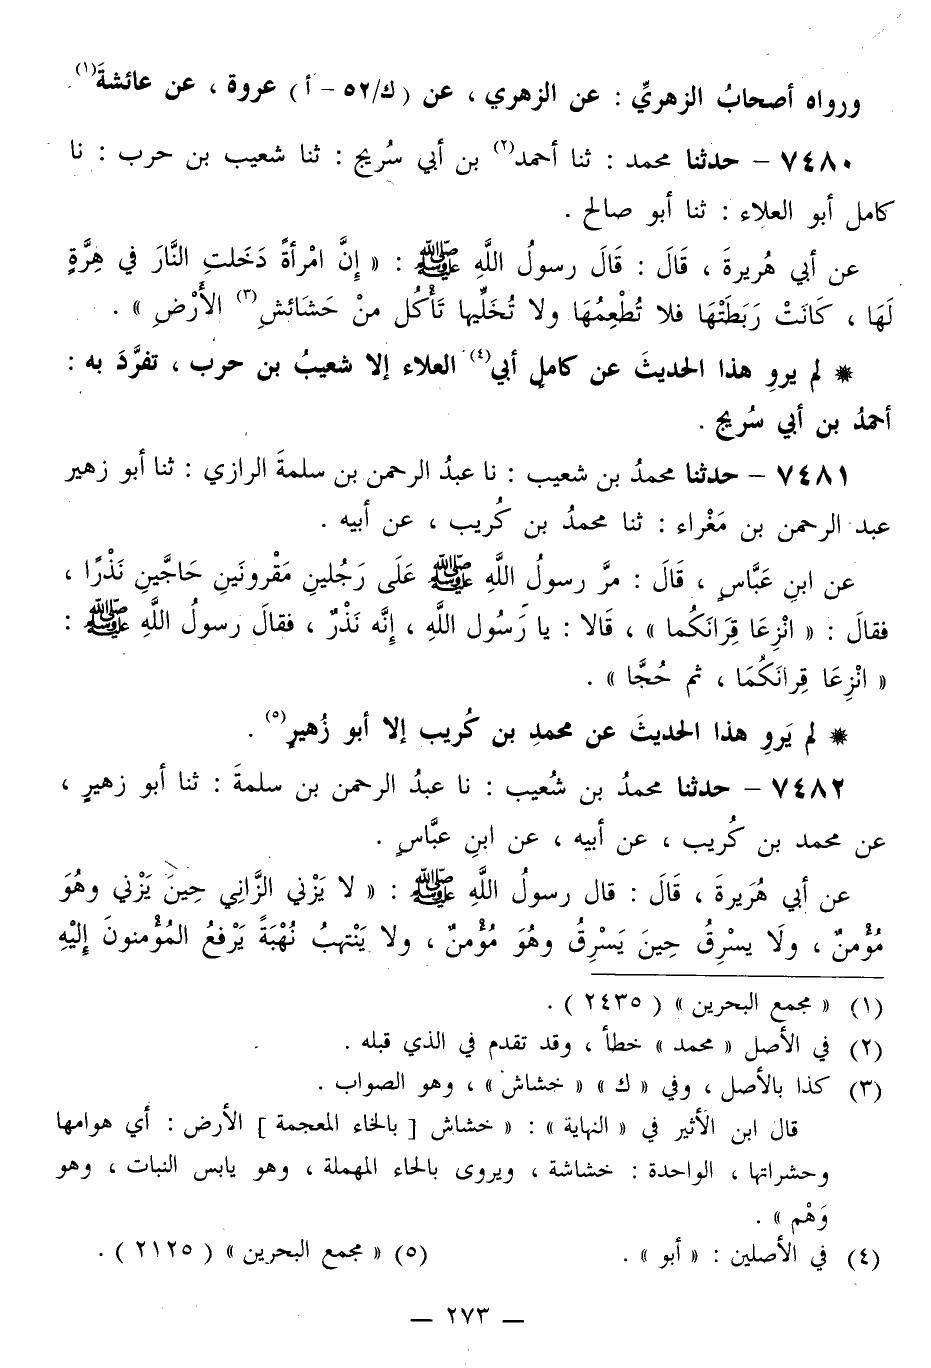 ورواه أصحابُ الزهريِّ : عن الزهري ، عن ( ك/٥٢ - أ ) عروة ، عن عائشةَ(١) .
٧٤٨٠ – حدثنا محمد : ثنا أحمد(٢) بن أبي سُريج : ثنا شعيب بن حرب : نا
كامل أبو العلاء : ثنا أبو صالح .
عن أبي هُريرةَ ، قَالَ : قَالَ رسولُ اللَّهِ ﷺ : « إِنَّ امْرأةً دَخَلتِ النَّارَ في هِرَّةٍ
لَهَا ، كَانَتْ رَبَطَتْهَا فلا تُطْعِمُهَا ولا تُخَلِّيها تَأْكُل منْ حَشَائشِ(٣) الأَرْضِ » .
✵ لم يروِ هذا الحديثَ عن كاملٍ أبي(٤) العلاء إلا شعيبُ بن حرب ، تفرَّدَ به :
أحمدُ بن أبي سُريج .
٧٤٨١ – حدثنا محمدُ بن شعيب : نا عبدُ الرحمن بن سلمةَ الرازي : ثنا أبو زهير
عبد الرحمن بن مَغْراء : ثنا محمدُ بن كُريب ، عن أبيه .
عن ابنِ عَبَّاسٍ ، قَالَ : مرَّ رسولُ اللَّهِ ﷺ عَلَى رَجُلينِ مَقْرونَينِ حَاجَّينِ نَذْرًا ،
فقالَ : « انْزِعَا قِرَانَكُما » ، قَالا : يا رَسُول اللَّهِ ، إِنَّه نَذْرٌ ، فقالَ رسولُ اللَّهِ ﷺ :
« انْزِعَا قِرانَكُمَا ، ثم حُجَّا » .
✵ لم يَروِ هذا الحديثَ عن محمدِ بن كُريب إلا أبو زُهيرٍ(٥) .
٧٤٨٢ – حدثنا محمدُ بن شُعيب : نا عبدُ الرحمن بن سلمةَ : ثنا أبو زهيرٍ ،
عن محمد بن كُريب ، عن أبيه ، عن ابنِ عبَّاسٍ .
عن أبي هُرَيرةَ ، قَالَ : قال رسولُ اللَّهِ ﷺ : « لا يَزْني الزَّانِي حِينَ يَزْني وهُوَ
مُؤْمنٌ ، ولَا يسْرِقُ حِينَ يَسْرِقُ وهُوَ مُؤْمنٌ ، ولا يَنْتهبُ نُهْبَةً يَرْفعُ المُؤْمنونَ إِليْهِ
(١) « مجمع البحرين » ( ٢٤٣٥ ) .
(٢) في الأصل « محمد » خطأ ، وقد تقدم في الذي قبله .
(٣) كذا بالأصل ، وفي « ك » « خشاش » ، وهو الصواب .
قال ابن الأثير في « النهاية » : « خشاش [ بالخاء المعجمة ] الأرض : أي هوامها
وحشراتها ، الواحدة : خشاشة ، ويروى بالحاء المهملة ، وهو يابس النبات ، وهو
وَهْم » .
(٤) في الأصلين : « أبو » . (٥) « مجمع البحرين » ( ٢١٢٥ ) .
— ٢٧٣ —